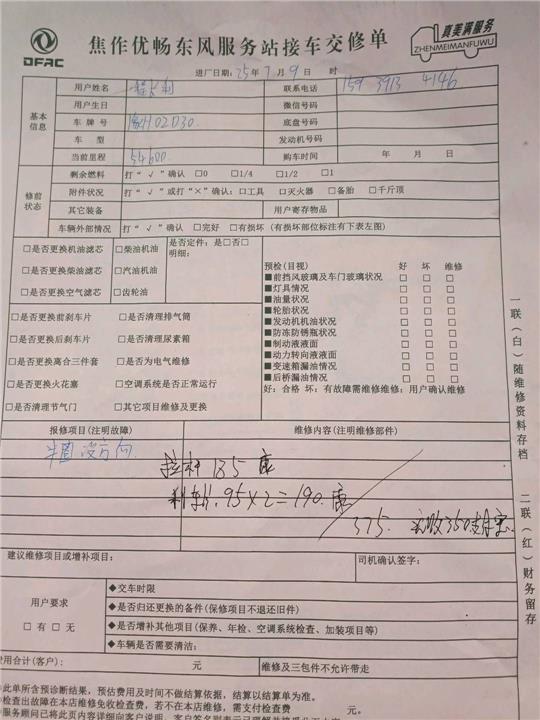 DFAC
焦作优畅东风服务站接车交修单
真美满服务
ZHENMEIMANFUWU
进厂日期：25年7月9日 时
基本信息
用户姓名
联系电话 159 3913 4146
用户生日
微信号码
车牌号 02D30
底盘号码
车型
发动机号码
当前里程 54600
购车时间 年 月 日
修前状态
剩余燃料 打“√”确认 □0 □1/4 □1/2 □1
附件状况 打“√”或打“×”确认：□工具 □灭火器 □备胎 □千斤顶
其它装备
用户寄存物品
车辆外部情况 打“√”确认 □完好 □有损坏（有损坏部位标注有下表左图）
□是否更换机油滤芯 □柴油机油
□是否更换柴油滤芯 □汽油机油
□是否更换空气滤芯 □齿轮油
是否定件：是□否□
明细：
□是否更换前刹车片 □是否清理排气筒
□是否更换后刹车片 □是否清理尿素箱
□是否更换离合三件套 □是否为电气维修
□是否更换火花塞 □空调系统是否正常运行
□是否清理节气门 □其它项目维修及更换
预检(目视) 好 坏 维修
■前挡风玻璃及车门玻璃状况 □ □ □
■灯具情况 □ □ □
■油量状况 □ □ □
■轮胎状况 □ □ □
■发动机机油状况 □ □ □
■防冻防锈瓶状况 □ □ □
■制动液液面 □ □ □
■动力转向液液面 □ □ □
■变速箱漏油情况 □ □ □
■后桥漏油情况 □ □ □
好：合格 坏：有故障需维修维修：用户确认维修
报修项目(注明故障)
维修内容(注明维修部件)
没方向
拉杆 185 康
刹车片 95×2=190 康
375 实收350
建议维修项目或增补项目：
司机确认签字：
用户要求
□有 □无
◆交车时限
◆是否归还更换的备件(保修项目不退还旧件)
◆是否增补其他项目(保养、年检、空调系统检查、加装项目等)
◆车辆是否需要清洁：
费用合计(客户)： 元
维修及三包件不允许带走
此单所含预诊断结果，预估费用及时间不做结算依据，结算以结算单为准。
检查出故障在本店维修免收检查费，若不在本店维修，需支付检查费 元。
一联(白)随维修资料存档
二联(红)财务留存